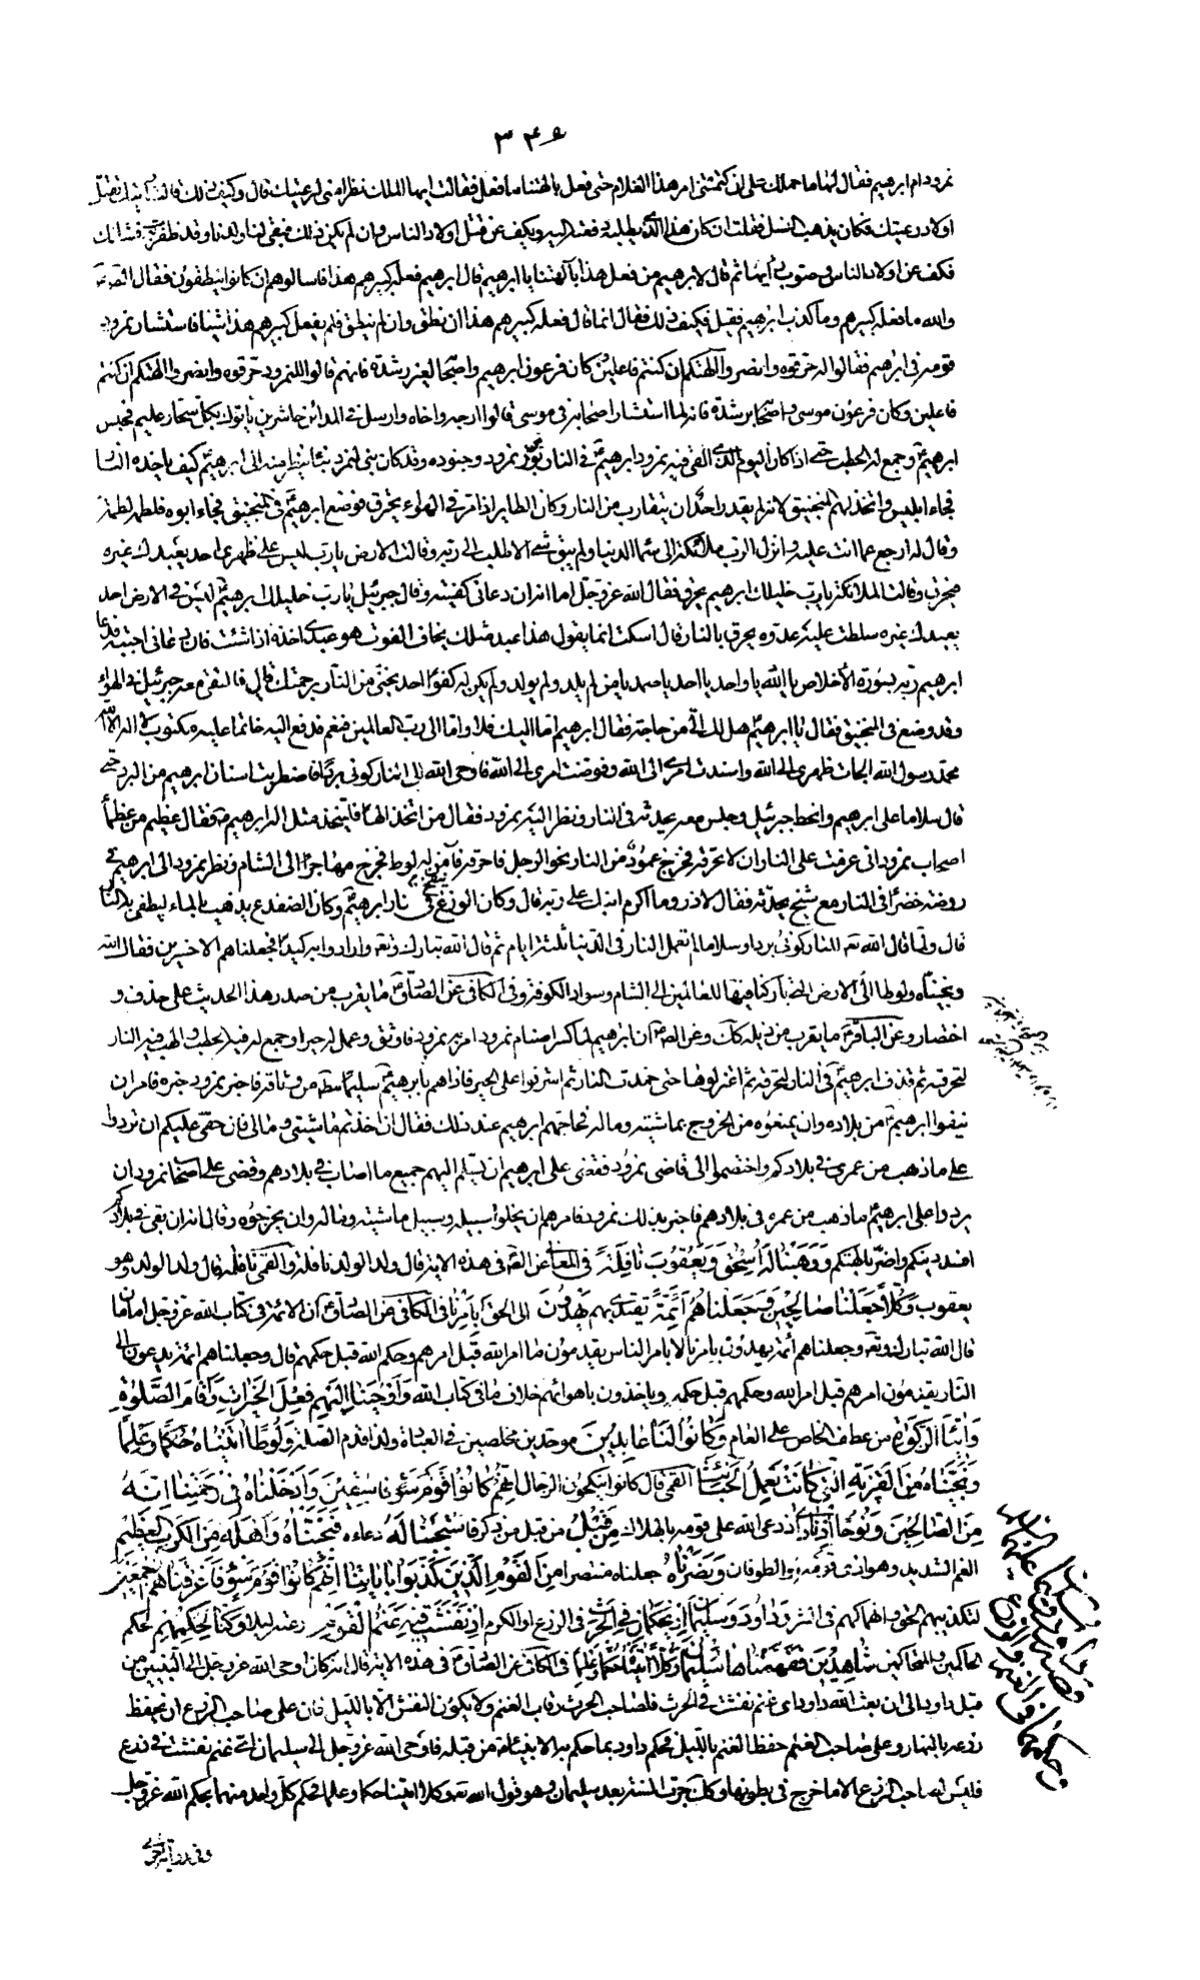 ٣٤٦
نمرود ام ابرهيم فقال لها ما حملك على ان كتمتنى امر هذا الغلام حتى فعل بالهتنا ما فعل فقالت ايها الملك نظرا منى لرعيتك قال وكيف ذلك قالت رايتك تقتل
اولاد رعيتك فكان يذهب النسل فقلت ان كان هذا الذى يطلبه دفعته اليه ويكف عن قتل اولاد الناس وان لم يكن ذلك فبقى لنا ولدنا وقد ظفرت به فشانك
فكف عن اولاد الناس فصوب رأيها ثم قال لابرهيم من فعل هذا بآلهتنا يا ابرهيم قال ابرهيم فعله كبيرهم هذا فاسالوهم ان كانوا ينطقون فقال الصادق
والله ما فعله كبيرهم وما كذب ابرهيم فقيل فكيف ذلك فقال انما قال فعله كبيرهم هذا ان نطق وان لم ينطق فلم يفعل كبيرهم هذا شيئا فاستشار نمرود
قومه فى ابرهيم فقالوا له حرقوه وانصروا آلهتكم ان كنتم فاعلين كان فرعون ابرهيم واصحابه لغير رشدة فانهم قالوا لنمرود حرقوه وانصروا الهتكم ان كنتم
فاعلين وكان فرعون موسى واصحابه رشدة فانه لما استشار اصحابه فى موسى قالوا ارجه واخاه وارسل فى المدائن حاشرين ياتوك بكل سحار عليم فحبس
ابرهيم وجمع له الحطب حتى اذا كان اليوم الذى القى فيه نمرود ابرهيم فى النار برز نمرود وجنوده وقد كان بنى لنمرود بناء ينظر منه الى ابرهيم كيف ياخذه النار
فجاء ابليس واتخذ لهم المنجنيق لانه لم يقدر احد ان يتقارب من النار وكان الطاير اذا مر فى الهواء يحترق فوضع ابرهيم فى المنجنيق فجاء ابوه فلطمه لطمة
وقال له ارجع عما انت عليه وانزل الرب ملائكته الى سماء الدنيا ولم يبق شئ الا طلب الى ربه وقالت الارض يا رب ليس على ظهرى احد يعبدك غيره
فيحرق وقالت الملائكة يا رب خليلك ابرهيم يحرق فقال الله عز وجل اما انه ان دعانى كفيته وقال جبرئيل يا رب خليلك ابرهيم ليس فى الارض احد
يعبدك غيره سلطت عليه عدوه يحرقه بالنار قال اسكت انما يقول هذا عبد مثلك يخاف الفوت هو عبدى اخذه اذا شئت فان دعانى اجبته فدعا
ابرهيم ربه بسورة الاخلاص يا الله يا واحد يا احد يا صمد يا من لم يلد ولم يولد ولم يكن له كفوا احد نجنى من النار برحمتك قال فالتقى معه جبرئيل فى الهواء
وقد وضع فى المنجنيق فقال يا ابرهيم هل لك الى من حاجة فقال ابرهيم اما اليك فلا واما الى رب العالمين فنعم فدفع اليه خاتما عليه مكتوب لا اله الا الله
محمد رسول الله الجات ظهرى الى الله واسندت امرى الى الله وفوضت امرى الى الله فاوحى الله الى النار كونى بردا فاضطربت اسنان ابرهيم من البرد حتى
قال سلاما على ابرهيم وانحط جبرئيل وجلس معه يحدثه فى النار ونظر اليه نمرود فقال من اتخذ الها فليتخذ مثل اله ابرهيم فقال عظيم من عظماء
اصحاب نمرود انى عزمت على النار ان لا تحرقه فخرج عمود من النار نحو الرجل فاحرقه فآمن له لوط فخرج مهاجرا الى الشام ونظر نمرود الى ابرهيم فى
روضة خضراء فى النار مع شيخ يحدثه فقال لاذر وما اكرم ابنك على ربه قال وكان الوزغ ينفخ فى نار ابرهيم وكان الضفدع يذهب بالماء ليطفى به النار
قال ولما قال الله تعه للنار كونى بردا وسلاما لم تعمل النار فى الدنيا ثلثة ايام ثم قال الله تبارك وتعه وارادوا به كيدا فجعلناهم الاخسرين فقال الله
ونجيناه ولوطا الى الارض التى باركنا فيها للعالمين الى الشام وسواد الكوفة وفى الكافى عن الصادق ما يقرب من صدر هذا الحديث على حذف و
اختصار وعن الباقر ما يقرب من ذيله كك وعن الصـ ان ابرهيم لما كسر اصنام نمرود امر به نمرود فاوثق وعمل له حيرا وجمع له فيه الحطب والهب فيه النار
لتحرقه ثم قذف ابرهيم فى النار لتحرقه ثم اعتزلوها حتى خمدت النار ثم اشرفوا على الحير فاذا هم بابرهيم سليما مطلقا من وثاقه فاخبر نمرود خبره فامر ان
ينفوا ابرهيم من بلاده وان يمنعوه من الخروج بماشيته وماله فحاجهم ابرهيم عند ذلك فقال ان اخذتم ماشيتى ومالى فان حقى عليكم ان تردوا
على ما ذهب من عمرى فى بلادكم واختصموا الى قاضى نمرود فقضى على ابرهيم ان يسلم اليهم جميع ما اصاب فى بلادهم وقضى على اصحاب نمرود ان
يردوا على ابرهيم ما ذهب من عمره فى بلادهم فاخبر بذلك نمرود فامرهم ان يخلوا سبيله وسبيل ماشيته وماله وان يخرجوه وقال انه ان بقى فى بلادكم
افسد دينكم واضر بالهتكم ووهبنا له اسحق ويعقوب نافلة فى المعانى عن الصـ فى هذه الاية قال ولد الولد نافلة والقمى نافلة قال ولد الولد وهو
يعقوب وكلا جعلنا صالحين وجعلناهم ائمة يقتدى بهم يهدون الى الحق بامرنا فى الكافى عن الصادق ان الائمة فى كتاب الله عز وجل امامان
قال الله تبارك وتعه وجعلناهم ائمة يهدون بامرنا لا بامر الناس يقدمون ما امر الله قبل امرهم وحكم الله قبل حكمهم قال وجعلناهم ائمة يدعون الى
النار يقدمون امرهم قبل امر الله وحكمهم قبل حكمه وياخذون باهوائهم خلاف ما فى كتاب الله واوحينا اليهم فعل الخيرات واقام الصلوة
وايتاء الزكوة من عطف الخاص على العام وكانوا لنا عابدين موحدين مخلصين فى العبادة ولذا قدم الصلة ولوطا اتيناه حكما وعلما
ونجيناه من القرية التى كانت تعمل الخبائث القمى قال كانوا ينكحون الرجال انهم كانوا قوم سوء فاسقين وادخلناه فى رحمتنا انه
من الصالحين ونوحا اذ نادى اذ دعى الله على قومه بالهلاك من قبل من قبل من ذكر فاستجبنا له دعاءه فنجيناه واهله من الكرب العظيم
الغم الشديد وهو اذى قومه والطوفان ونصرناه جعلناه منتصرا من القوم الذين كذبوا باياتنا انهم كانوا قوم سوء فاغرقناهم اجمعين
لتكذيبهم الحق وانهماكهم فى الشر وداود وسليمان اذ يحكمان فى الحرث فى الزرع او الكرم اذ نفشت فيه غنم القوم رعته ليلا وكنا لحكمهم لحكم
الحاكمين والمتحاكمين شاهدين ففهمناها سليمان وكلا آتينا حكما وعلما فى الكافى عن الصادق فى هذه الاية قال انه كان اوحى الله عز وجل الى النبيين من
قبل داود الى ان بعث الله داود اى غنم نفشت فى الحرث فلصاحب الحرث رقاب الغنم ولا يكون النفش الا بالليل فان على صاحب الزرع ان يحفظ
زرعه بالنهار وعلى صاحب الغنم حفظ الغنم بالليل فحكم داود بما حكم به الانبياء من قبله فاوحى الله عز وجل الى سليمان اى غنم نفشت فى زرع
فليس لصاحب الزرع الا ما خرج فى بطونها وكك جرت السنة بعد سليمان وهو قول الله تعه وكلا اتينا حكما وعلما فحكم كل واحد منهما بحكم الله عز وجل
وفى رواية اخرى